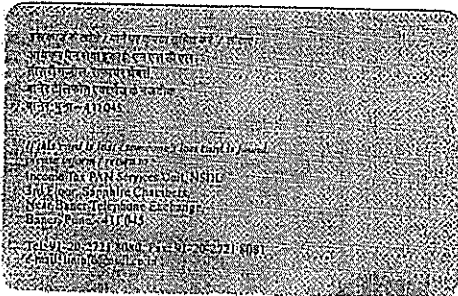 इस कार्ड के खोने / पाने पर कृपया सूचित करें / लौटाएं
आयकर पैन सेवा इकाई, एन एस डी एल
बानेर टेलिफोन एक्स्चेंज के नजदीक
बानेर, पुना - 411045
If this card is lost / someone's lost card is found,
please inform / return to :
Income Tax PAN Services Unit, NSDL
3rd Floor, Sapphire Chambers,
Near Baner Telephone Exchange,
Baner, Pune - 411 045
Tel: 91-20-2721 8080, Fax: 91-20-2721 8081